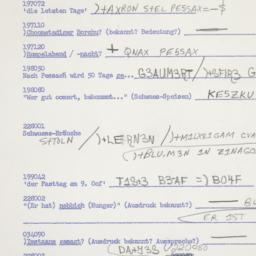 197072
'die letzten Tage' )+AXRON S+EL PESSAX=—$
197110
)Chometsdiger Borchu? (bekannt? Bedeutung?)
197120
)Rumpelabend / -nacht? + QNAX PESSAX
198050
Nach Pessach wird 50 Tage ge... G3AUM3RT /
198060
"Wer gut omert, bekommt..." (Schwuos-Speisen) KE5ZKU
228001
Schwuos-Bräuche /)+LERN3N /)+M1LX1GAM
)+BLU.M3N 1N Z1NAGO
199042
'der Fasttag am 9. Oof' T1S13 B3AF =) BO4F
228002
"(Er hat) nebbich (Hunger)" (Ausdruck bekannt?)
ER 1ST
034090
(Ausdruck bekannt? Aussprache?)
(DA+Y3S 0220080